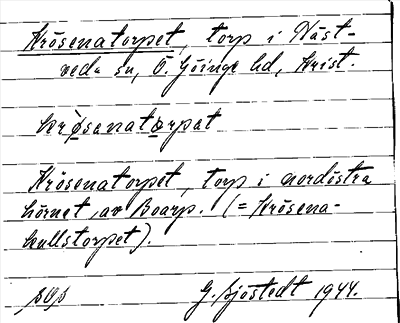 Krösenatorpet, torp i Näst-
veds sn, Ö. Göinge hd, Krist.
krø̀senatorpat
Krösenatorpet, torp i nordöstra
hörnet av Boarp. (= Krösena-
kullstorpet).
G. Sjöstedt 1944.